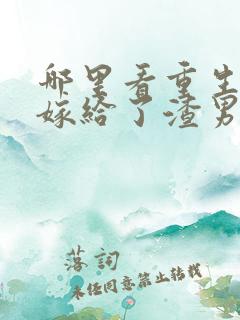 哪里看重生
嫁给了渣男
落詞
未经同意禁止转载